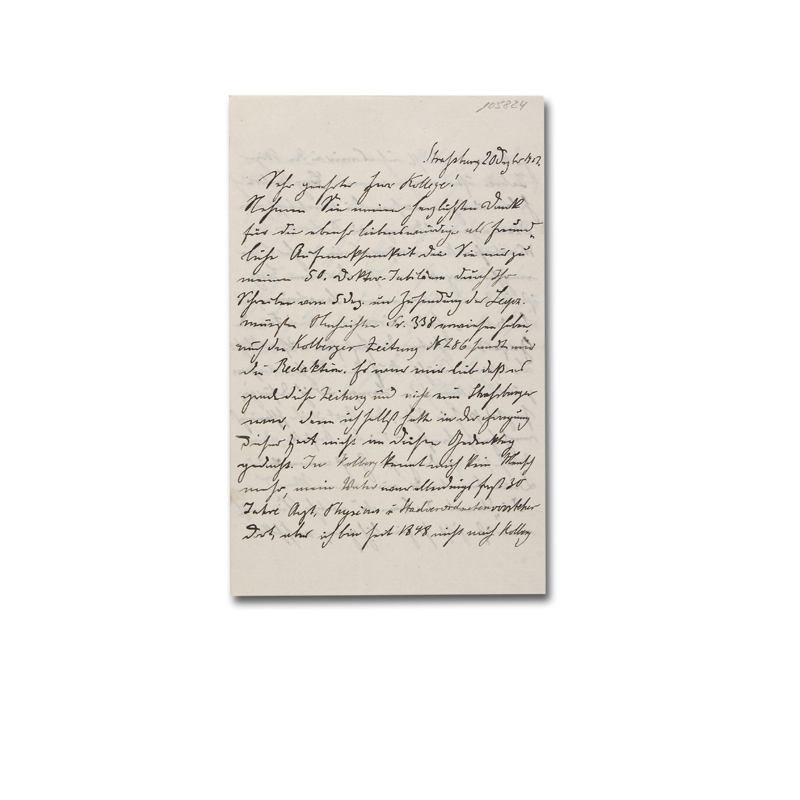 105824
Straßburg 20 Dezbr 1907.
Sehr geehrter Herr Kollege!
Nehmen Sie meinen herzlichsten Dank
für die ebenso liebenswürdige als freund-
liche Aufmerksamkeit die Sie mir zu
meinem 50. Doktor-Jubiläum durch Ihr
Schreiben vom 5 Dez. und Zusendung der
Nachrichten Nr. 338 erwiesen haben,
auch die Kolberger Zeitung № 286 sandte mir
die Redaktion. Es war mir lieb daß es
gerade diese Zeitung und nicht eine Straßburger
war, denn ich selbst hatte in der Erregung
dieser Zeit nicht an diesen Gedenktag
gedacht. In Kolberg kennt mich kein Mensch
mehr, mein Vater war allerdings fast 30
Jahre Arzt, Physicus u Stadtverordnetenvorsteher
dort, aber ich bin seit 1848 nicht nach Kolberg